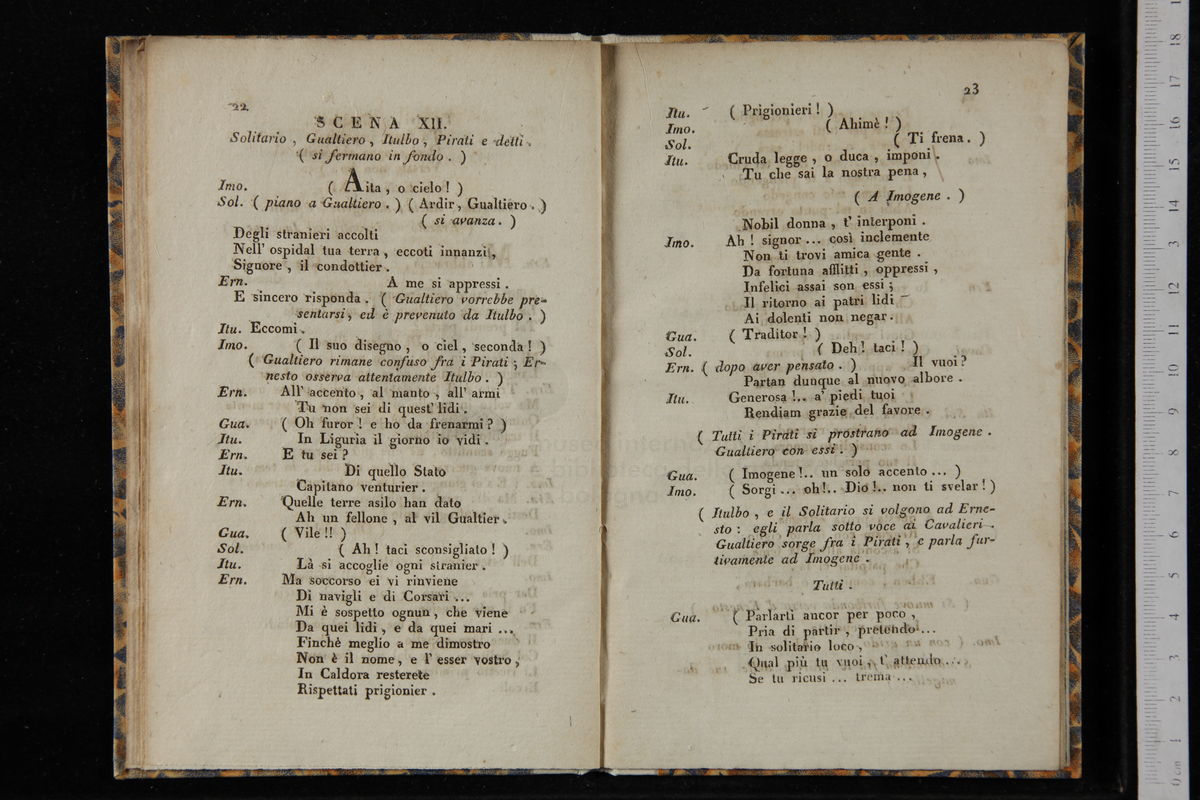 22.
SCENA XII.
Solitario , Gualtiero , Itulbo , Pirati e detti .
( si fermano in fondo . )
Imo. ( Aita , o cielo ! )
Sol. ( piano a Gualtiero . ) ( Ardir, Gualtiero . )
( si avanza . )
Degli stranieri accolti
Nell' ospidal tua terra , eccoti innanzi ,
Signore , il condottier .
Ern. A me si appressi .
E sincero risponda . ( Gualtiero vorrebbe pre-
sentarsi , ed è prevenuto da Itulbo . )
Itu. Eccomi .
Imo. ( Il suo disegno , o ciel , seconda ! )
( Gualtiero rimane confuso fra i Pirati ; Er-
nesto osserva attentamente Itulbo . )
Ern. All' accento , al manto , all' armi
Tu non sei di quest' lidi .
Gua. ( Oh furor ! e ho da frenarmi ? )
Itu. In Liguria il giorno io vidi .
Ern. E tu sei ?
Itu. Di quello Stato
Capitano venturier .
Ern. Quelle terre asilo han dato
Ah un fellone , al vil Gualtier .
Gua. ( Vile !! )
Sol. ( Ah ! taci sconsigliato ! )
Itu. Là si accoglie ogni stranier .
Ern. Ma soccorso ei vi rinviene
Di navigli e di Corsari ...
Mi è sospetto ognun , che viene
Da quei lidi , e da quei mari ...
Finchè meglio a me dimostro
Non è il nome , e l' esser vostro ,
In Caldora resterete
Rispettati prigionier .
23
Itu. ( Prigionieri ! )
Imo. ( Ahimè ! )
Sol. ( Ti frena . )
Itu. Cruda legge , o duca , imponi .
Tu che sai la nostra pena ,
( A Imogene . )
Nobil donna , t' interponi .
Imo. Ah ! signor ... così inclemente
Non ti trovi amica gente .
Da fortuna afflitti , oppressi ,
Infelici assai son essi ;
Il ritorno ai patri lidi
Ai dolenti non negar .
Gua. ( Traditor ! )
Sol. ( Deh ! taci ! )
Ern. ( dopo aver pensato . ) Il vuoi ?
Partan dunque al nuovo albore .
Itu. Generosa !.. a' piedi tuoi
Rendiam grazie del favore .
( Tutti i Pirati si prostrano ad Imogene .
Gualtiero con essi . )
Gua. ( Imogene !.. un solo accento ... )
Imo. ( Sorgi ... oh !.. Dio !.. non ti svelar ! )
( Itulbo , e il Solitario si volgono ad Erne-
sto : egli parla sotto voce ai Cavalieri .
Gualtiero sorge fra i Pirati , e parla fur-
tivamente ad Imogene .
Tutti .
Gua. ( Parlarti ancor per poco ,
Pria di partir , pretendo ...
In solitario loco ,
Qual più tu vuoi , t' attendo ...
Se tu ricusi ... trema ...